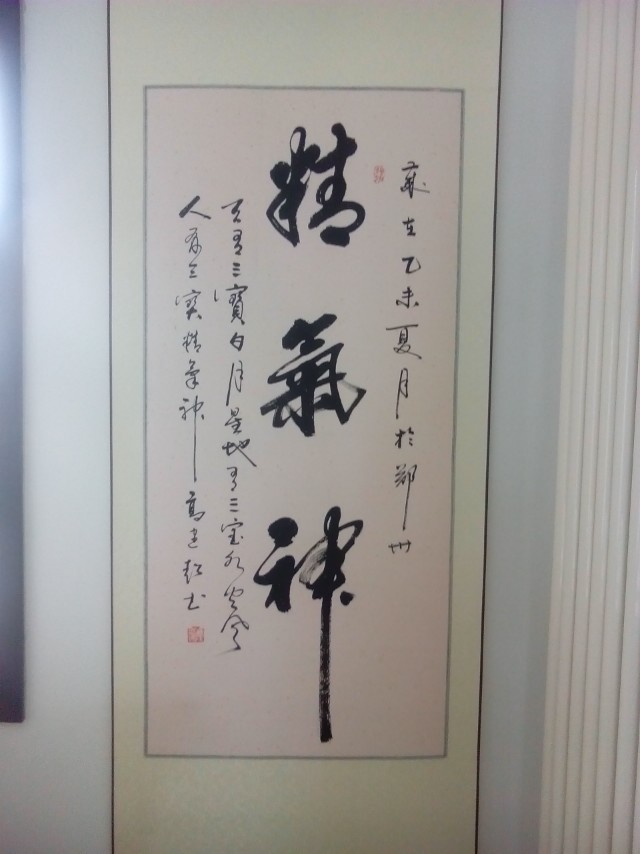 歲在乙未夏月於鄭州
精氣神
天有三寶日月星地有三宝水火风
人有三寶精氣神高建书